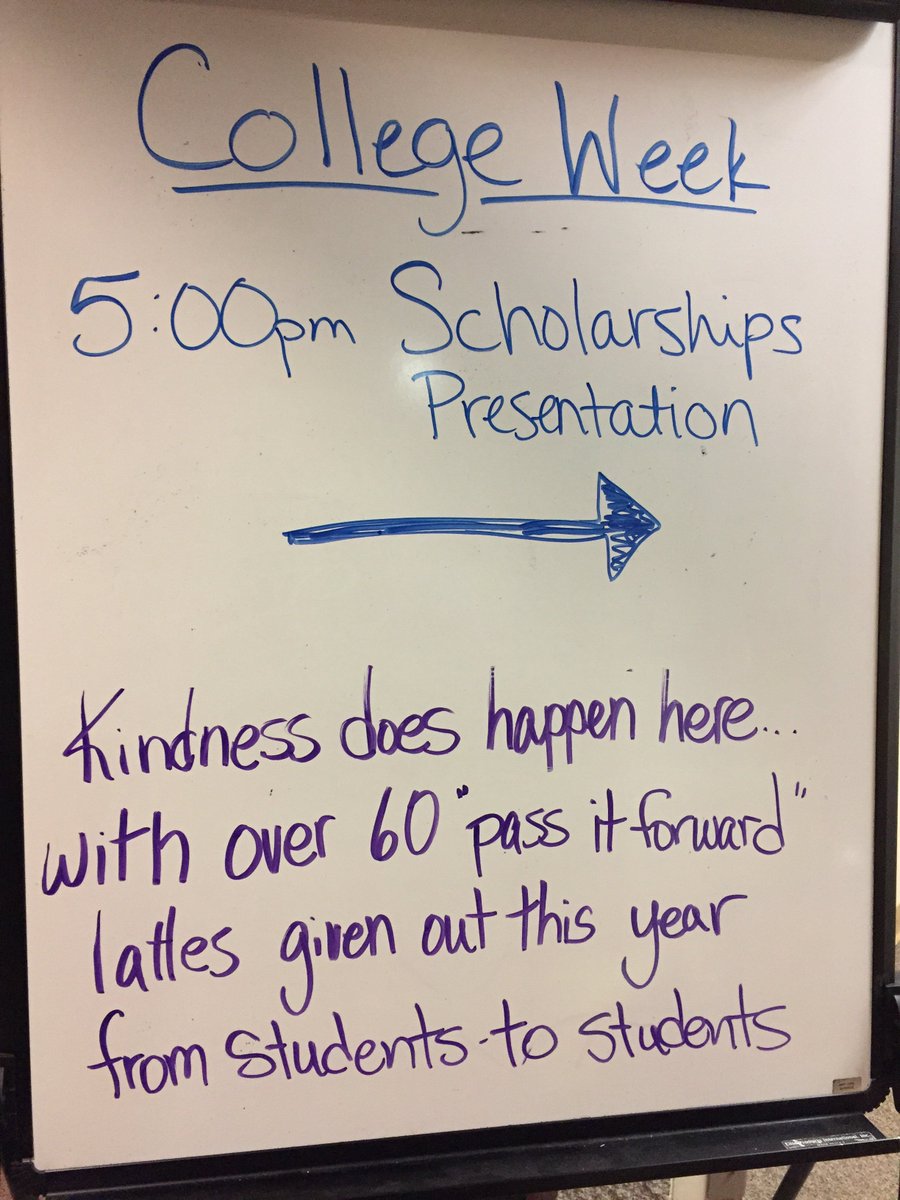 College Week
5:00pm Scholarships
Presentation
Kindness does happen here...
with over 60 "pass it forward"
lattes given out this year
from students to students